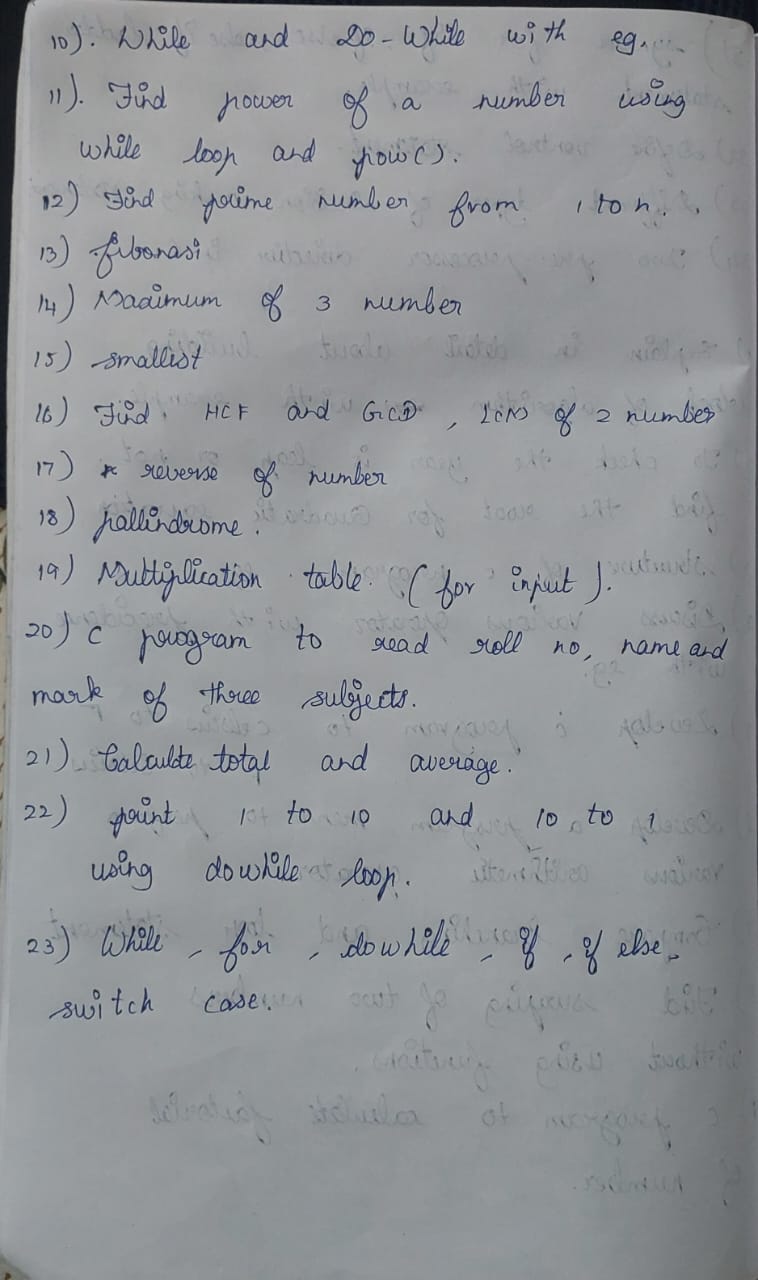 10). While and Do-While with eg.
11). Find power of a number using
while loop and pow().
12) Find prime number from 1 to n.
13) fibonasi
14) Maximum of 3 number
15) smallest
16) Find HCF and GCD, LCM of 2 number
17) reverse of number
18) pallindrome.
19) Multiplication table. (for input).
20) C program to read roll no, name and
mark of three subjects.
21) Calculte total and average.
22) print 1 to 10 and 10 to 1
using dowhile loop.
23) While, for, dowhile, if, if else,
switch case.